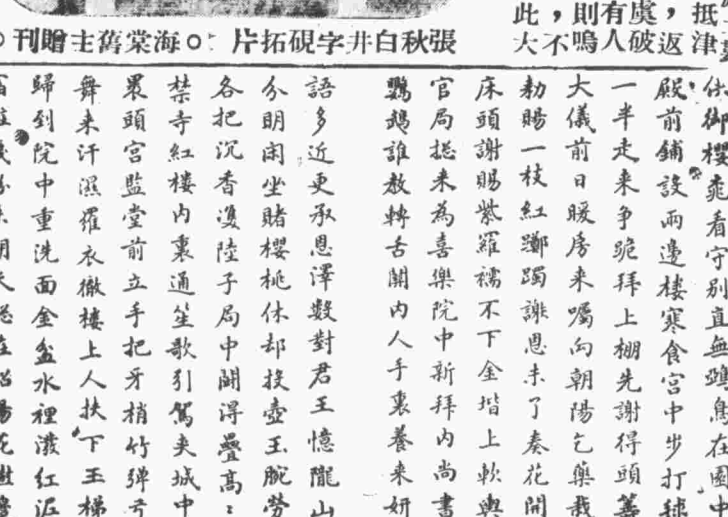 抵，虞有則，此
津返破人嗚不大
張秋白井字硯拓片 ○ 海棠舊主贈刊
看守別直無鴉鳥在園中
殿前鋪設兩邊樓寒食宮中步打毬
一半走來爭跪拜上棚先謝得頭籌
大儀前日暖房來囑向朝陽乞藥栽
勅賜一枝紅躑躅謝恩未了奏花開
床頭謝賜紫羅襦不下金堦上軟輿
官局捴來為喜樂院中新拜內尚書
鸚鵡誰教轉舌關內人手裏養來姸
語多近更承恩澤數對君王憶隴山
分明閑坐賭櫻桃休却投壺玉腕勞
各把沉香雙陸子局中鬪得疊高〻
禁寺紅樓內裏通笙歌引駕夾城中
裹頭宮監堂前立手把牙梢竹弹弓
舞來汗濕羅衣徹樓上人扶下玉梯
歸到院中重洗面金盆水裡潑紅泥